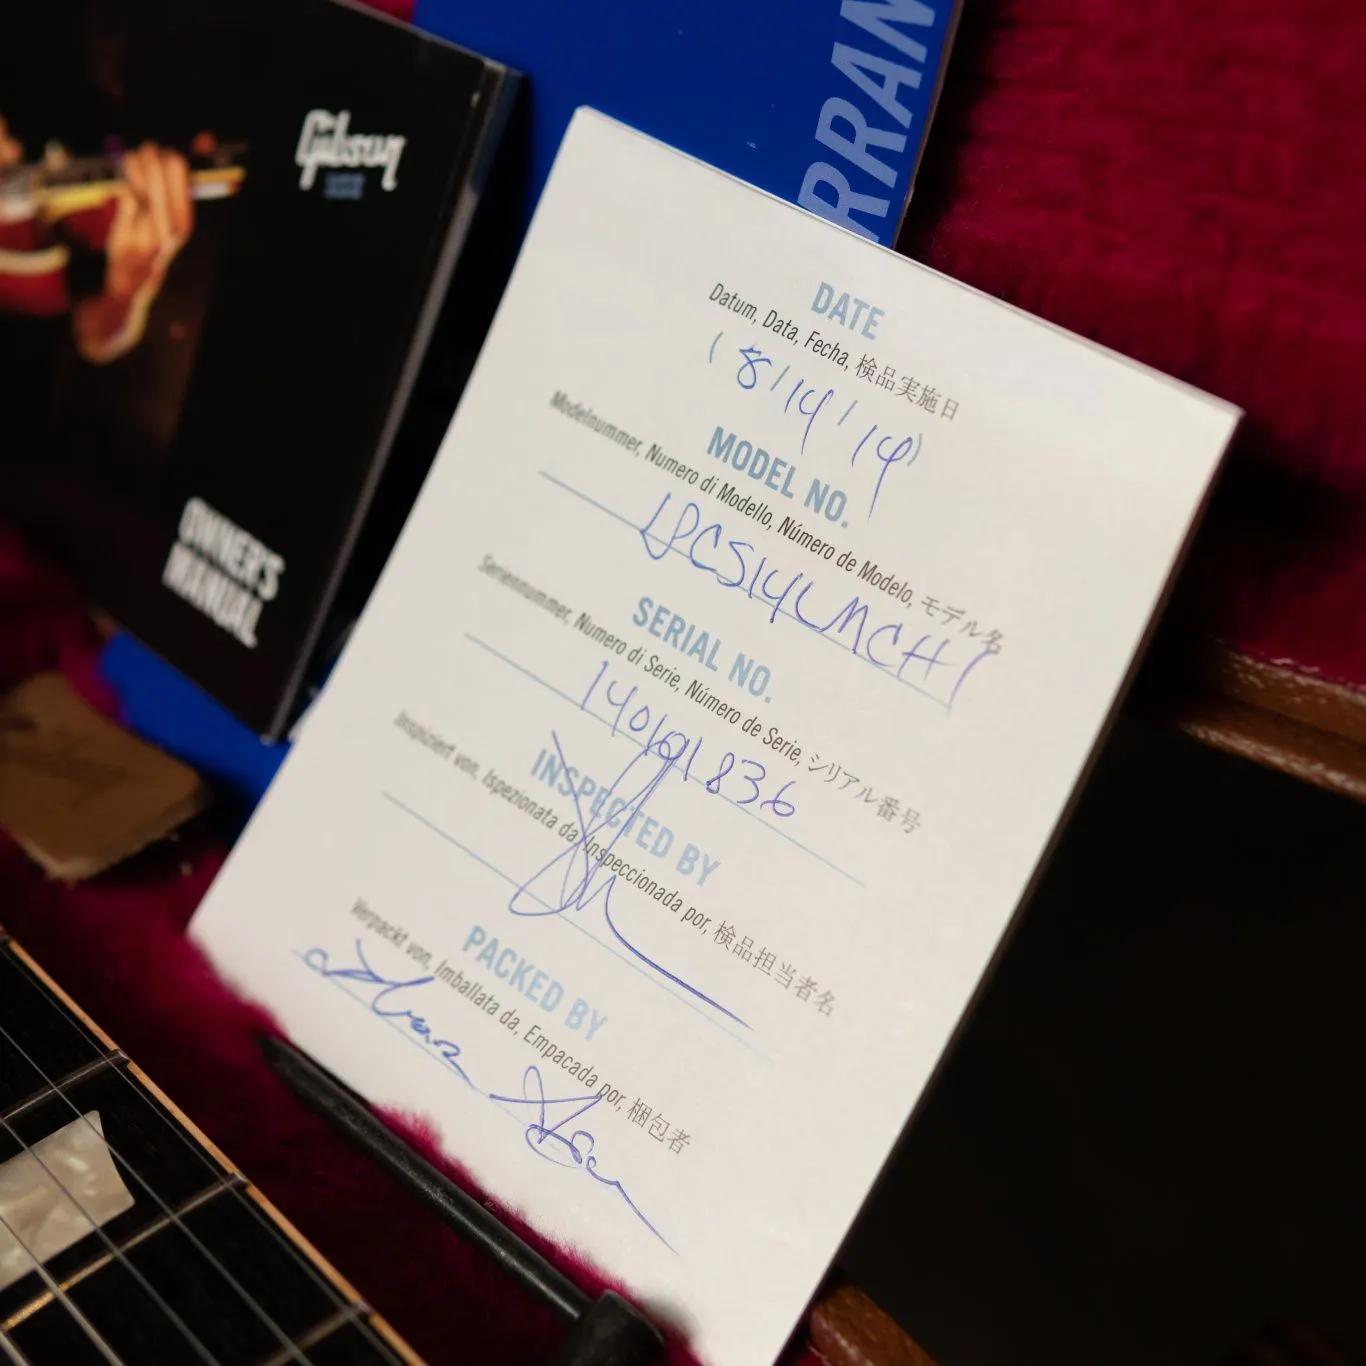 Gibson
OWNER'S
MANUAL
RRAN
DATE
Datum, Data, Fecha, 検品実施日
8/14/14
MODEL NO.
Modelnummer, Numero di Modello, Número de Modelo, モデル名
LPCS14LMCH1
SERIAL NO.
Seriennummer, Numero di Serie, Número de Serie, シリアル番号
140101836
INSPECTED BY
Inspiziert von, Ispezionata da, Inspeccionada por, 検品担当者名
PACKED BY
Verpackt von, Imballata da, Empacada por, 梱包者